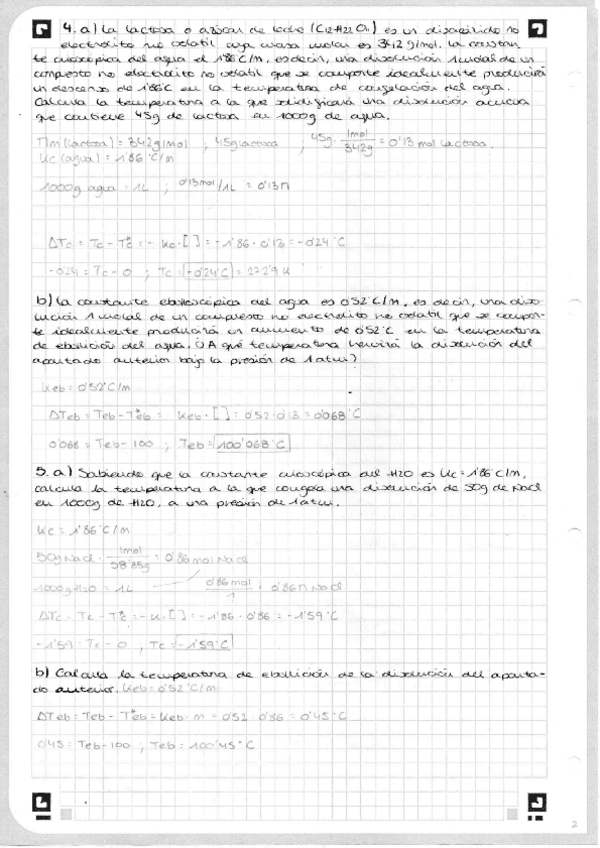 4. a) La lactosa o azúcar de leche (C12H22O11) es un disacárido no
electrolito no volatil cuya masa molar es 342 g/mol. La constan
te crioscópica del agua el 1'86°C/m, es decir, una disolución 1 molal de un
compuesto no electrolito no volatil que se comporte idealmente produciría
un descenso de 1'86°C en la temperatura de congelación del agua.
Calcula la temperatura a la que solidificará una disolución acuosa
que contiene 45g de lactosa en 1000g de agua.
Mm (lactosa) = 342g/mol ; 45g lactosa ; 45g · 1mol/342g = 0'13 mol lactosa.
Kc (agua) = 1'86°C/m
1000g agua = 1L ; 0'13mol/1L = 0'13M
ΔTc = Tc - T°c = - Kc · [ ] = -1'86 · 0'13 = -0'24°C
-0'24 = Tc - 0 ; Tc = -0'24°C = 272'9 K
b) La constante ebulloscópica del agua es 0'52°C/m, es decir, una diso-
lución 1 molal de un compuesto no electrolito no volatil que se compor-
te idealmente produciría un aumento de 0'52°C en la temperatura
de ebullición del agua. ¿A qué temperatura hervirá la disolución del
apartado anterior bajo la presión de 1 atm?
Keb = 0'52°C/m
ΔTeb = Teb - T°eb = Keb · [ ] = 0'52 · 0'13 = 0'068°C
0'068 = Teb - 100 ; Teb = 100'068°C
5. a) Sabiendo que la constante crioscópica del H2O es Kc = 1'86°C/m,
calcula la temperatura a la que congela una disolución de 50g de NaCl
en 1000g de H2O, a una presión de 1 atm.
Kc = 1'86°C/m
50g NaCl · 1mol/58'85g = 0'86 mol NaCl
1000g H2O = 1L 0'86 mol/1 = 0'86M NaCl
ΔTc = Tc - T°c = -K · [ ] = -1'86 · 0'86 = -1'59°C
-1'59 = Tc - 0 , Tc = -1'59°C
b) Calcula la temperatura de ebullición de la disolución del aparta-
do anterior. Keb = 0'52°C/m
ΔTeb = Teb - T°eb = Keb · m = 0'52 · 0'86 = 0'45°C
0'45 = Teb - 100 , Teb = 100'45°C
2